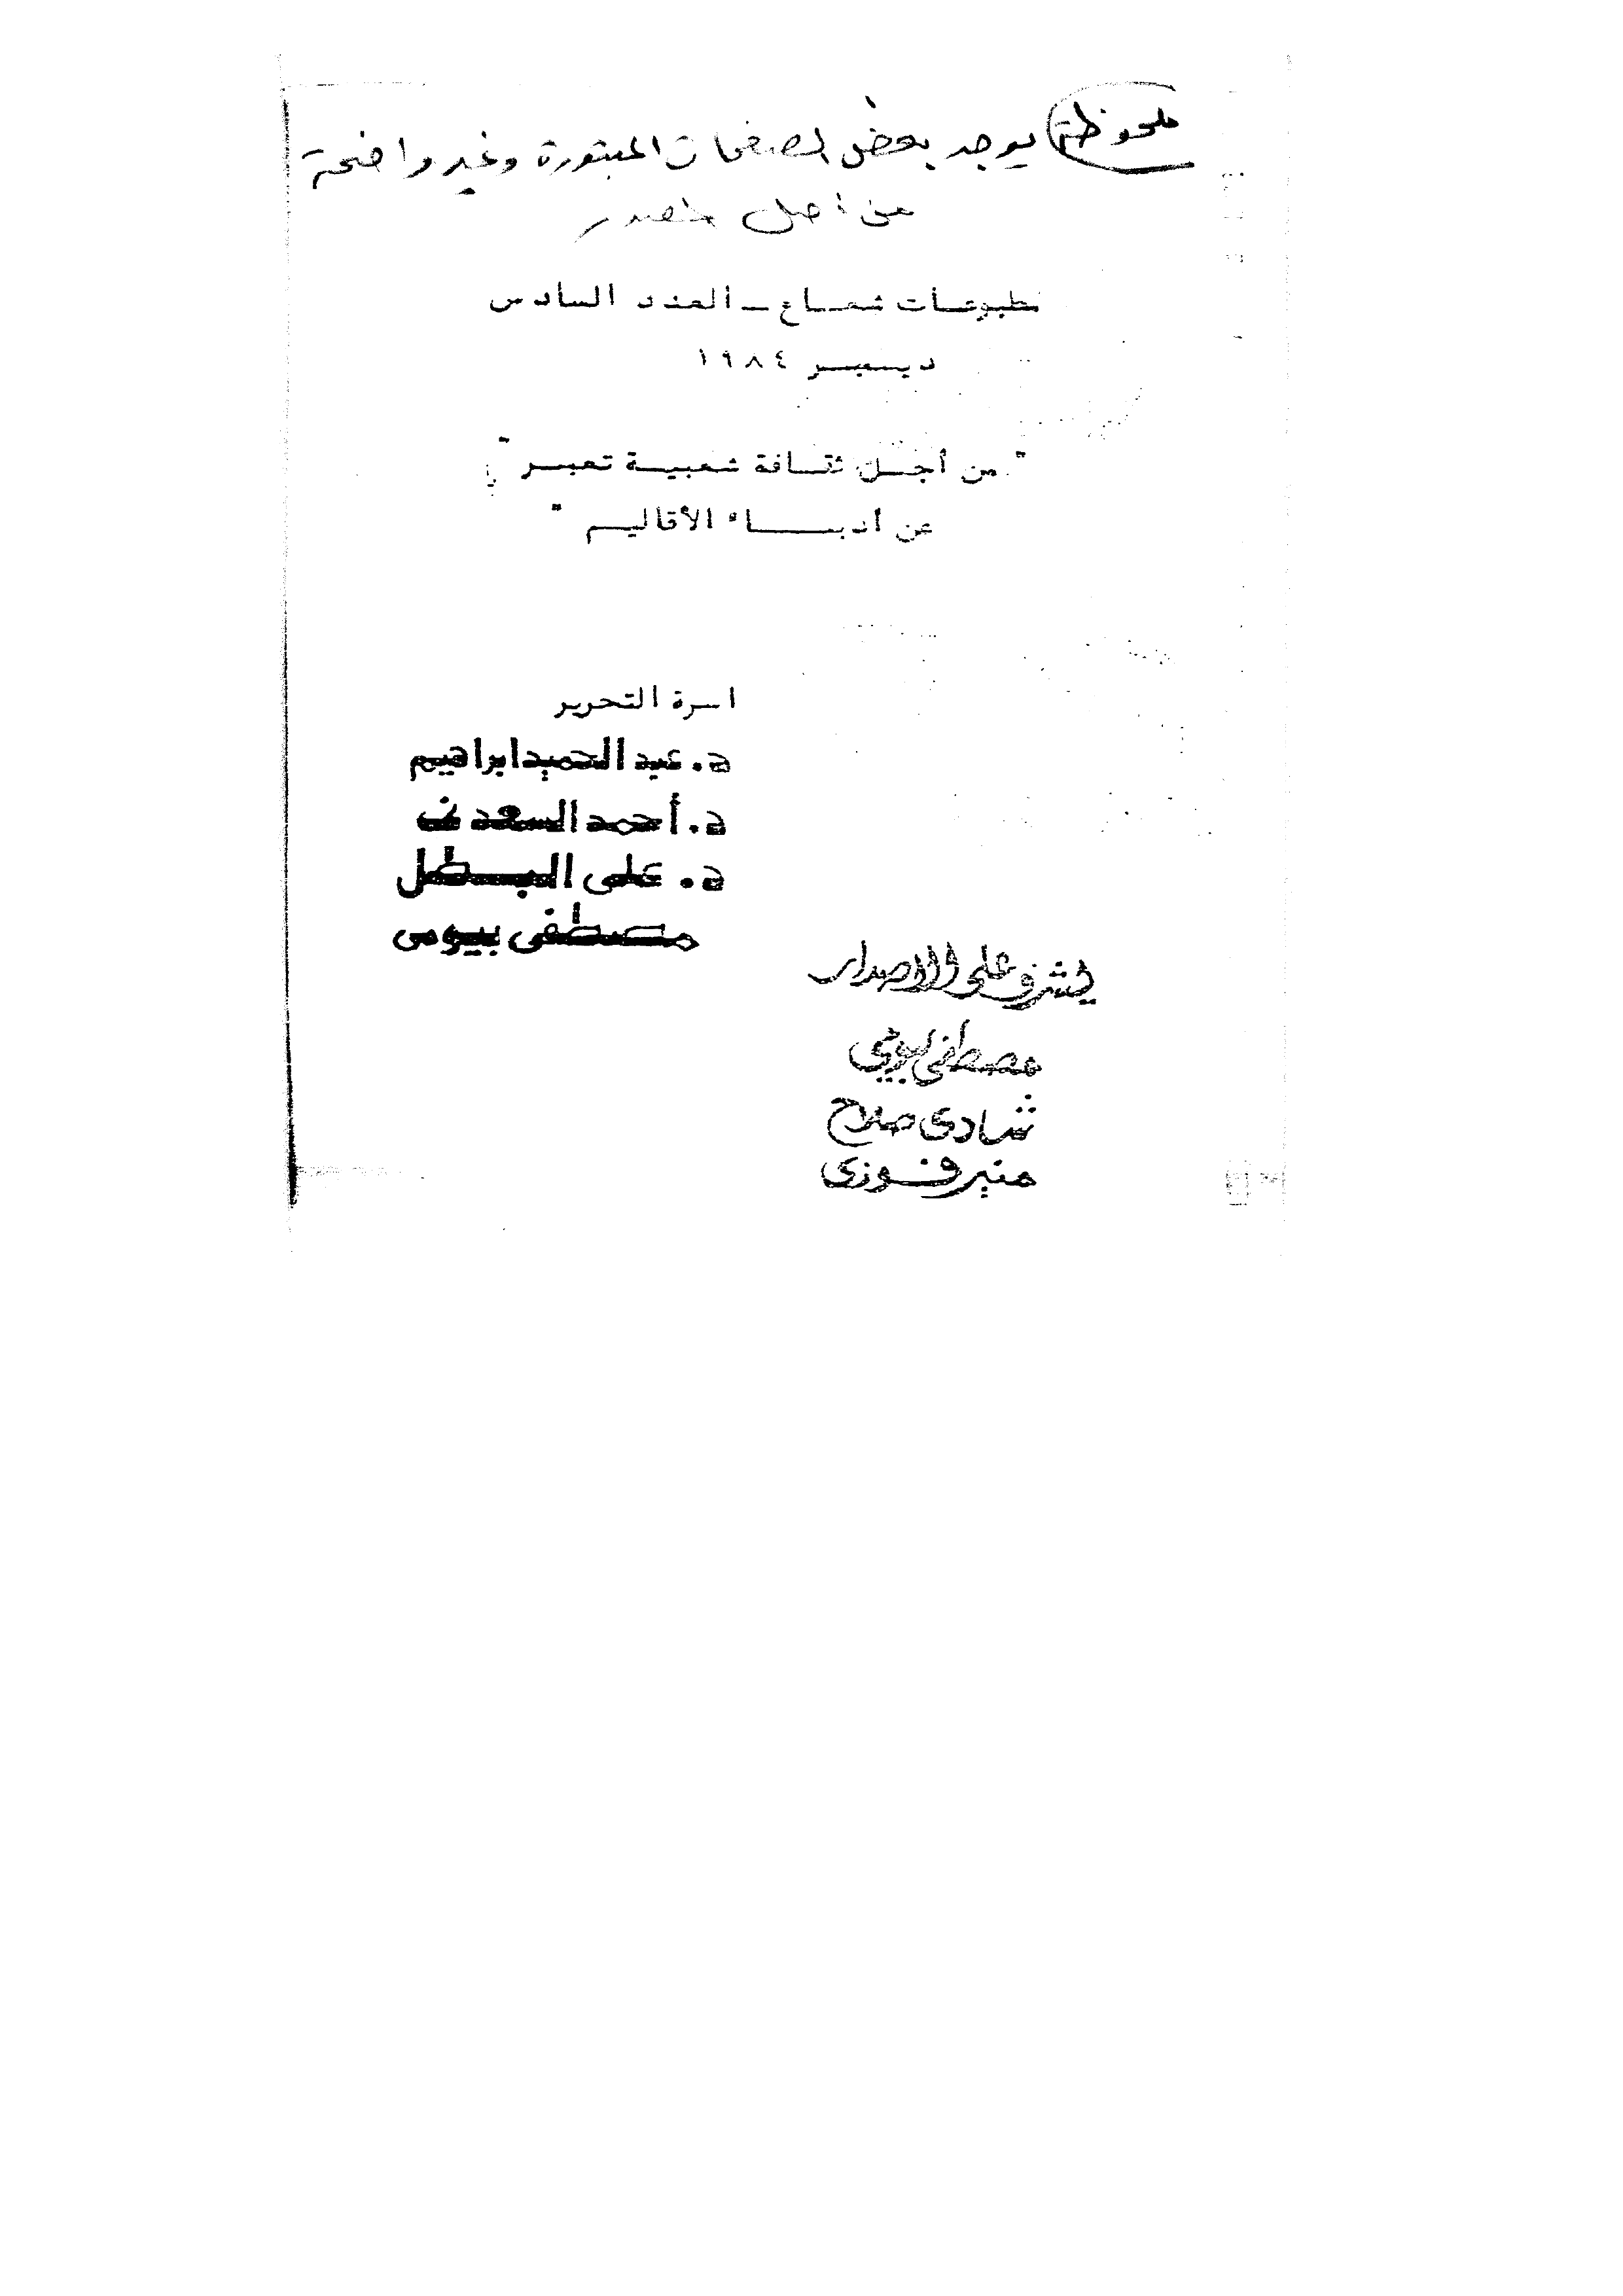 ملحوظة يوجد بعض الصفحات المبتورة وغير واضحة
من أصل المصدر
مطبوعات شعاع - العدد السادس
ديسمبر ١٩٨٤
" من أجل ثقافة شعبية تعبر
عن أدباء الأقاليم "
اسرة التحرير
د. عبد الحميد ابراهيم
د. أحمد السعدنى
د. على البطل
مصطفى بيومى
يشرف على الاصدار
مصطفى بيومي
شادى صلاح
منير فوزى